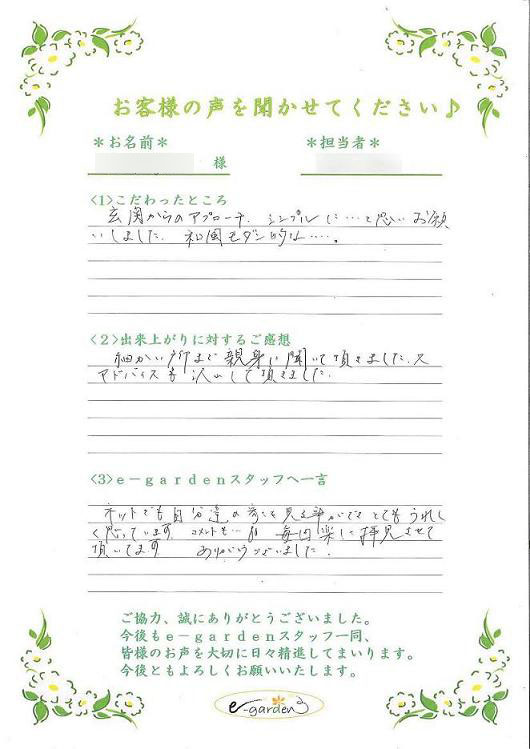 お客様の声を聞かせてください♪
＊お名前＊ ＊担当者＊
様
<1>こだわったところ
玄関からのアプローチ、シンプルに…と思いお願
いしました。和風モダン的な……。
<2>出来上がりに対するご感想
細かい所まで親身に聞いて頂きました。又
アドバイスも沢山して頂きました。
<3>e－gardenスタッフへ一言
ネットでも自分達の家を見る事ができとてもうれし
く思っています コメントも… 毎回楽に拝見させて
頂いてます ありがとうございました。
ご協力、誠にありがとうございました。
今後もe－gardenスタッフ一同、
皆様のお声を大切に日々精進してまいります。
今後ともよろしくお願いいたします。
e-garden